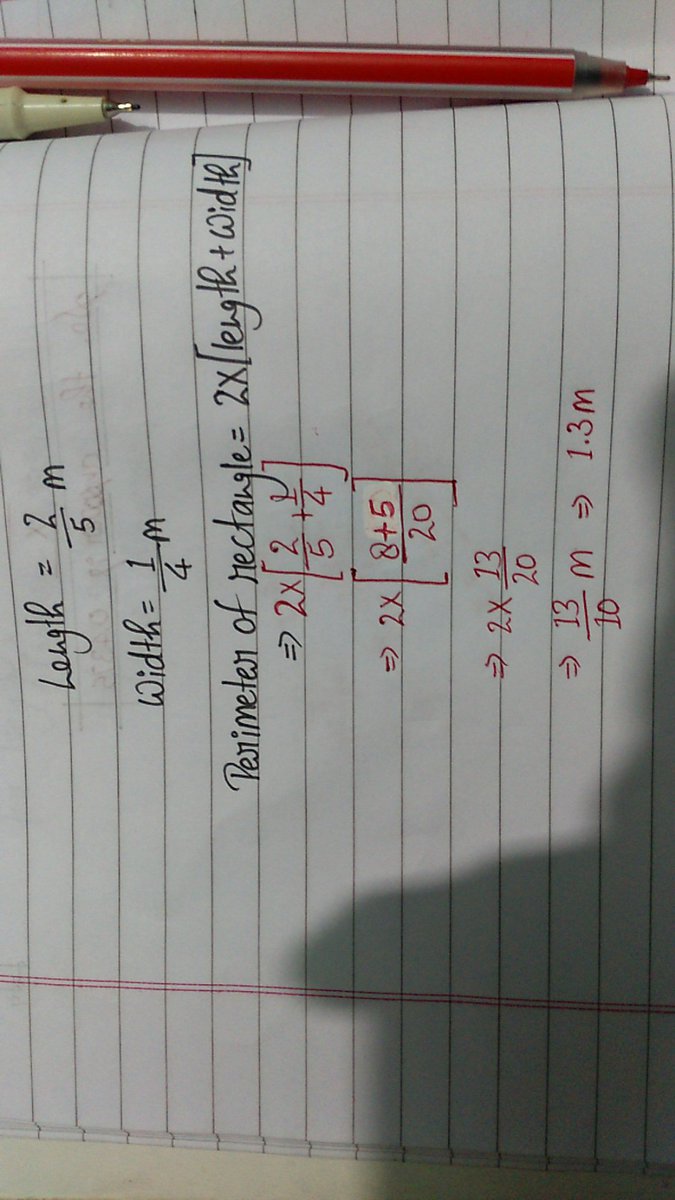 Length = 2/5 m
Width = 1/4 m
Perimeter of rectangle = 2x[length + width]
⇒ 2x[2/5 + 1/4]
⇒ 2x[8+5/20]
⇒ 2x 13/20
⇒ 13/10 m ⇒ 1.3m